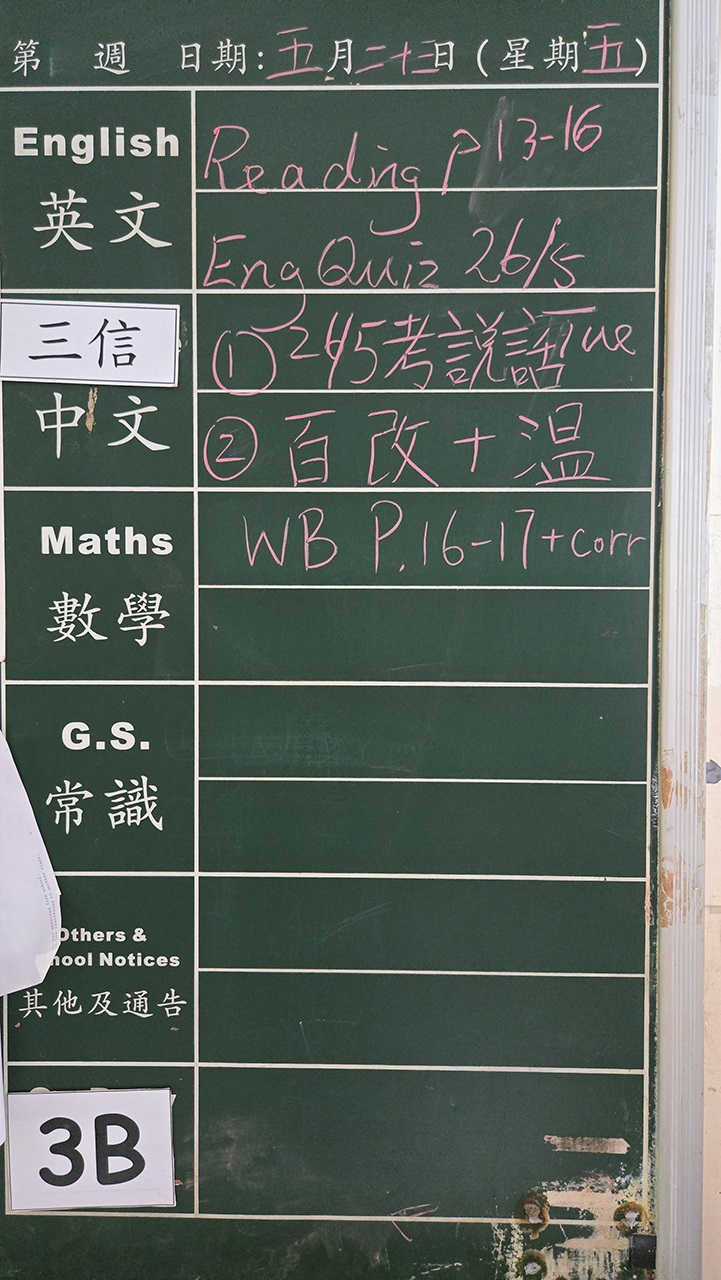 第 週 日期:五月二十三日(星期五)
English
英文
Reading P13-16
Eng Quiz 26/5
三信
中文
① 2/5考說話
② 百改+温
Maths
數學
WB P.16-17+corr
G.S.
常識
Others &
hool Notices
其他及通告
3B